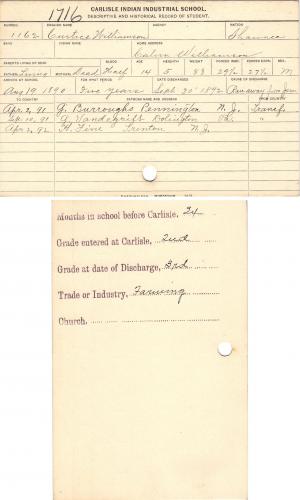 1716
CARLISLE INDIAN INDUSTRIAL SCHOOL.
DESCRIPTIVE AND HISTORICAL RECORD OF STUDENT.
NUMBER ENGLISH NAME AGENCY NATION
1162 Curtice Williamson Shawnee
BAND INDIAN NAME HOME ADDRESS
Calvin Williamson
PARENTS LIVING OR DEAD BLOOD AGE HEIGHT WEIGHT FORCED INSP. FORCED EXPR. SEX
FATHER Living MOTHER Dead Half 14 5 83 29½ 27½ M
ARRIVED AT SCHOOL FOR WHAT PERIOD DATE DISCHARGED CAUSE OF DISCHARGE
Aug 19 1890 Five years Sept 30 1892 Ran away from farm
TO COUNTRY PATRONS NAME AND ADDRESS FROM COUNTRY
Apr 2, 91 G. Burroughs Pennington N. J. Transf.
10, 91 G. Vandegrift Pa. "
Apr 2, 92 Trenton N. J.
Months in school before Carlisle, 24
Grade entered at Carlisle, 2nd
Grade at date of Discharge, 3rd
Trade or Industry, Farming
Church.